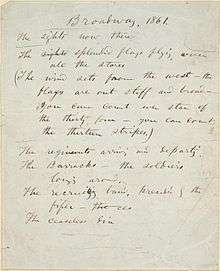 Broadway, 1861.
The sights now there
The splendid flags flying over
all the stores
(The wind sets from the west — the
flags are out stiff and broad —
you can count every star
of the thirty four — you can count
the thirteen stripes.)
The regiments arriving and departing,
The Barracks — the soldiers
lounging around,
The recruiting band, preceded by the
fifer — the
The ceaseless din